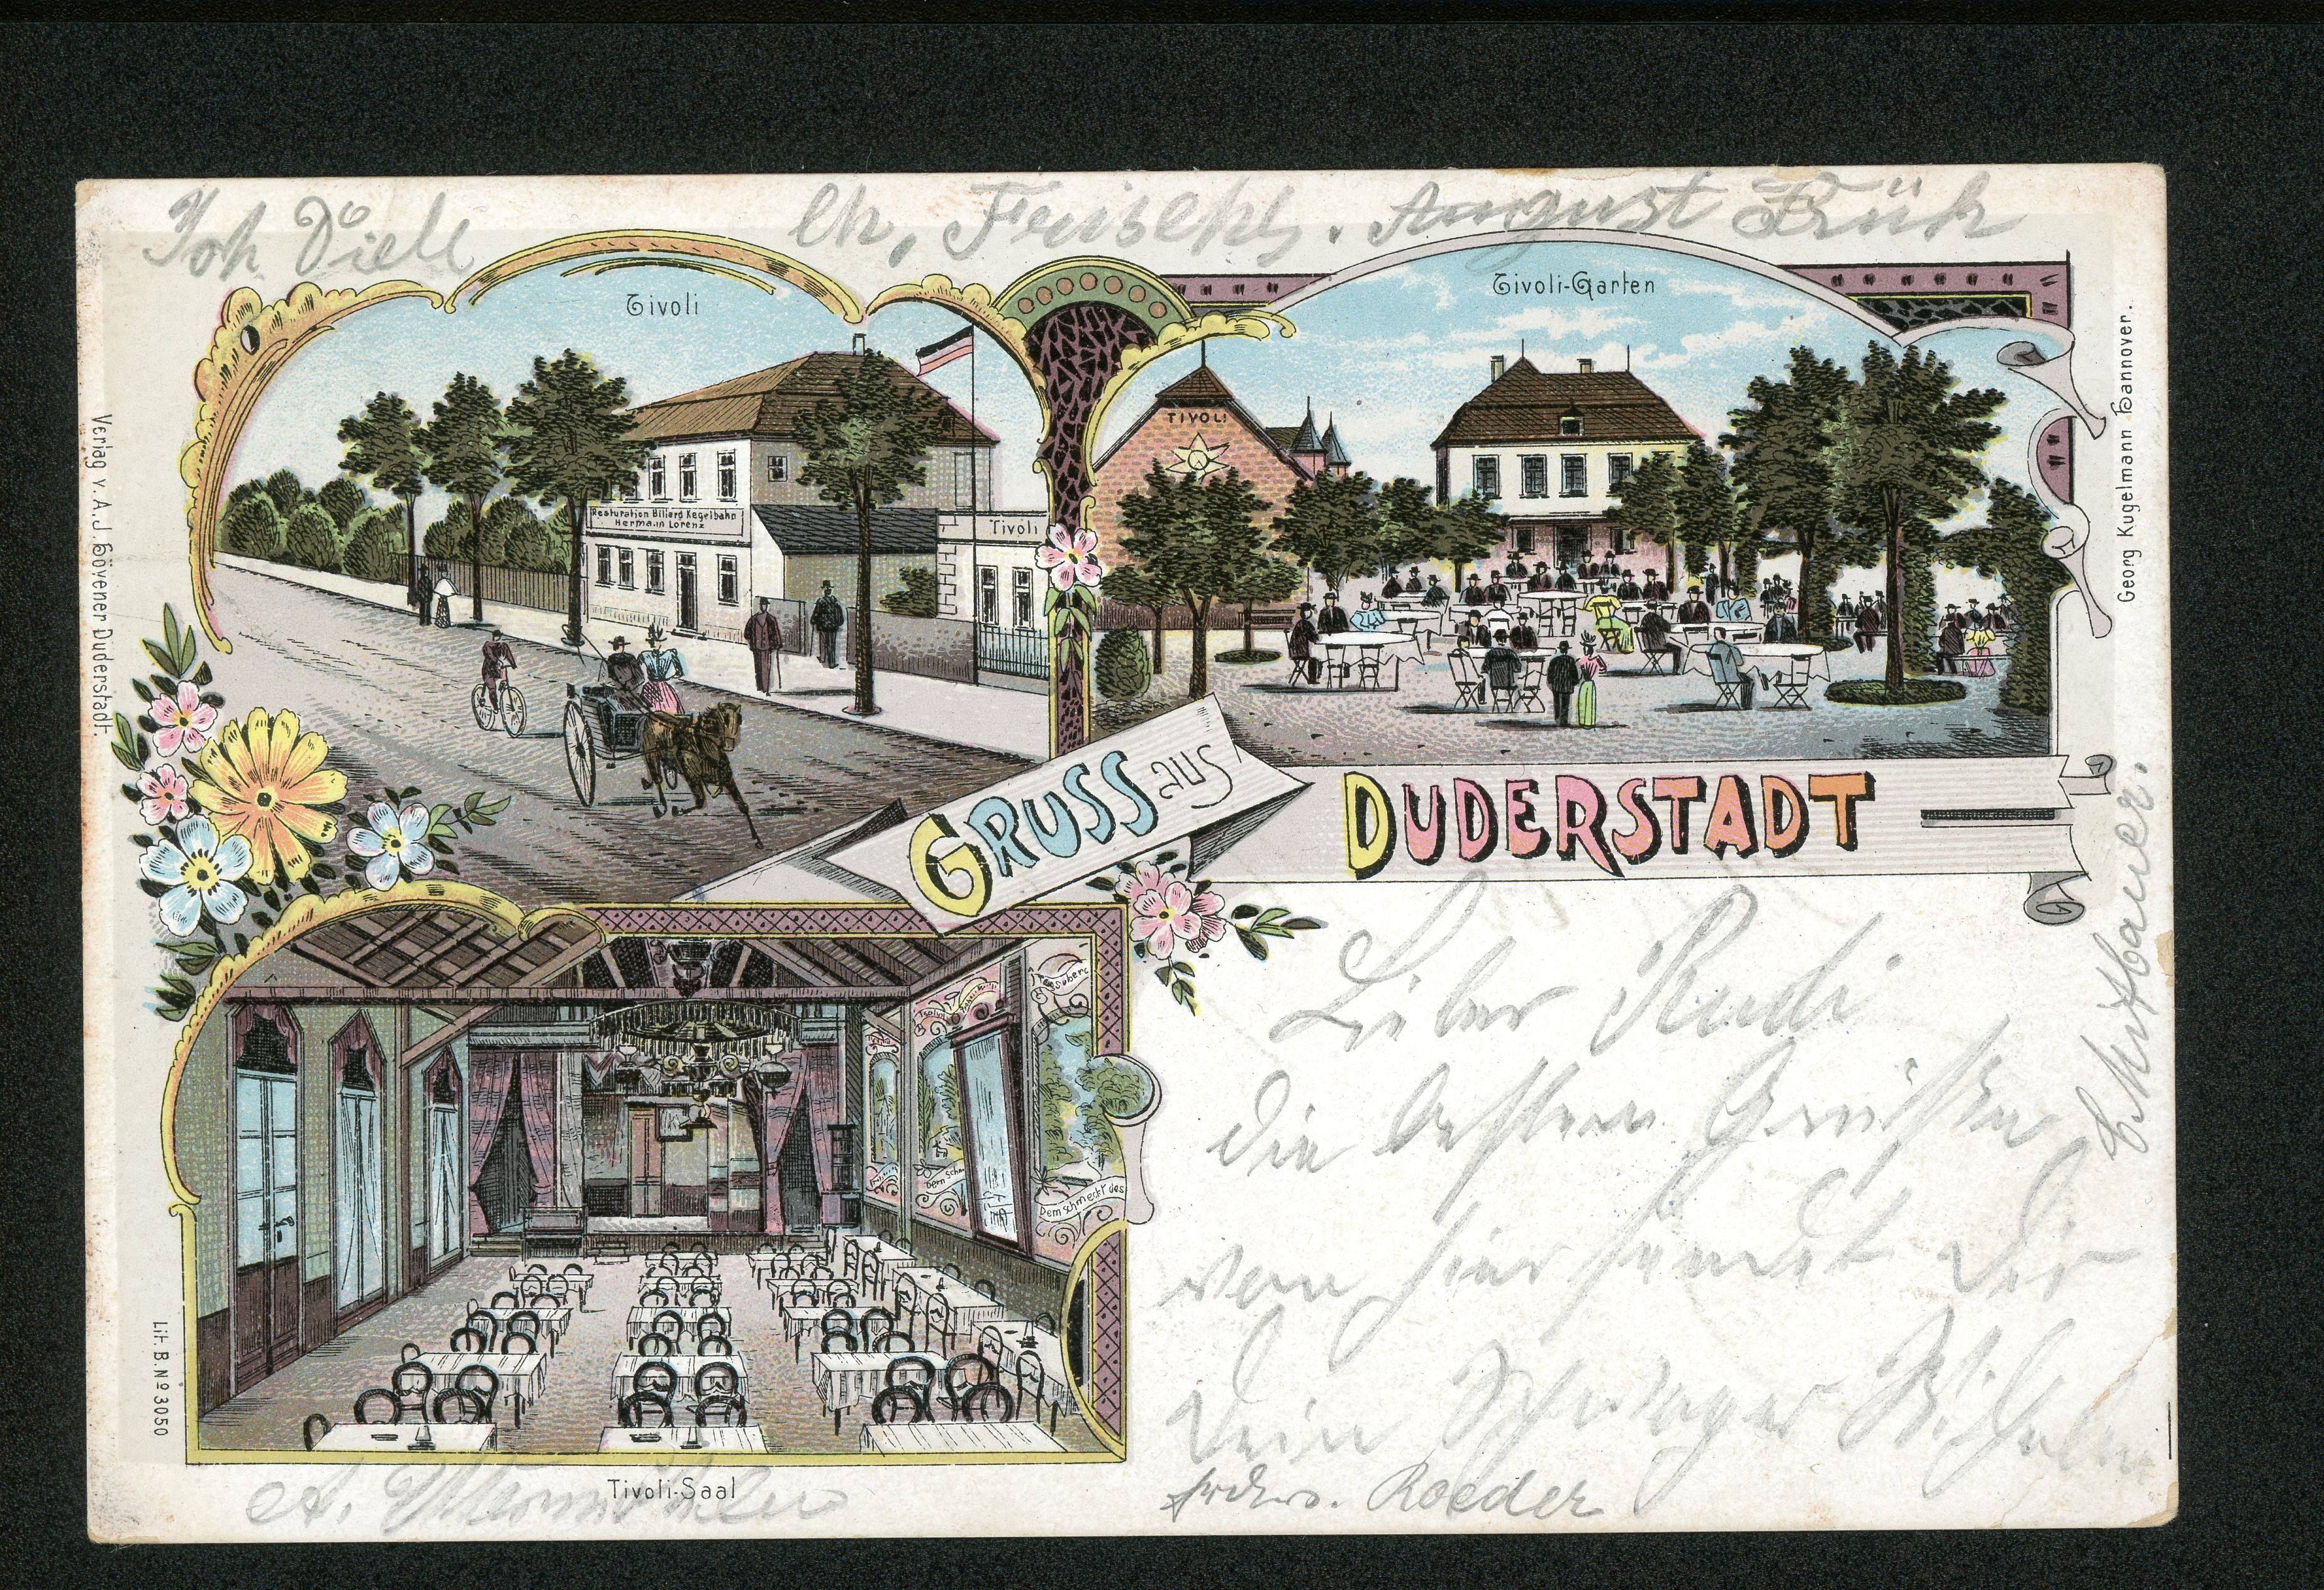 Joh Diell
Ch, Frisch, August Früh
Tivoli
Tivoli-Garten
TIVOLI
Resturation Billard Kegelbahn
Hermann Lorenz
Tivoli
Verlag v. A.J. Hövener Duderstadt.
Georg Kugelmann Hannover.
GRUSS aus
DUDERSTADT
Lieber Rudi
die besten Grüße
von hier sendet Dir
Dein Schwager Wilhelm
Roeder
Dem schmeckt des
Tivoli-Saal
Lit. B. No 3050